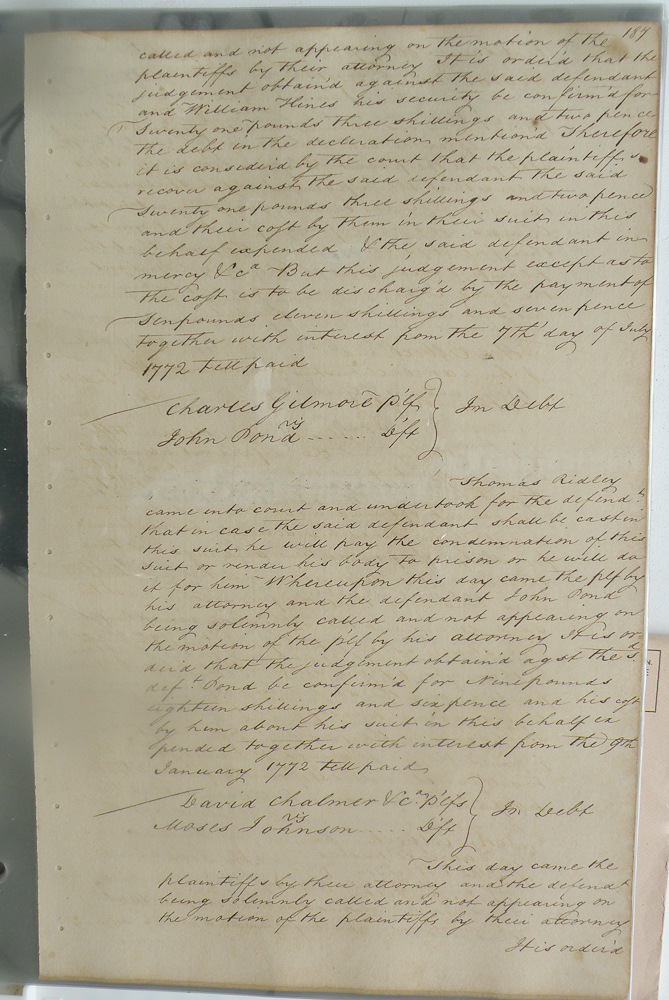 187
called and not appearing on the motion of the
plaintiffs by their attorney It is order'd that the
judgement obtain'd against the said defendant
and William Hines his security be confirm'd for
Twenty one pounds three shillings and two pence
the debt in the declaration mention'd Therefore
it is consider'd by the court that the plaintiffs
recover against the said defendant the said
Twenty one pounds three shillings and two pence
and their cost by them in their suit in this
behalf expended & the said defendant in
mercy &ca But this judgement except as to
the cost is to be discharg'd by the payment of
Tenpounds eleven shillings and seven pence
together with interest from the 7th day of July
1772 till paid
Charles Gilmore Plf
vs
John Pond ...... Dft
In Debt
Thomas Ridley
came into court and undertook for the defendt
that in case the said defendant shall be cast in
this suit he will pay the condemnation of this
suit or render his body to prison or he will do
it for him Whereupon this day came the plf by
his attorney and the defendant John Pond
being solemnly called and not appearing on
the motion of the plf by his attorney It is or
der'd that the judgement obtain'd agst the sd
deft Pond be confirm'd for Ninepounds
eighteen shillings and sixpence and his cost
by him about his suit in this behalf ex
pended together with interest from the 9th
January 1772 till paid
David Chalmer &ca Plfs
vs
Moses Johnson ..... Dft
In Debt
This day came the
plaintiffs by their attorney and the defendt
being solemnly called and not appearing on
the motion of the plaintiffs by their attorney
It is order'd